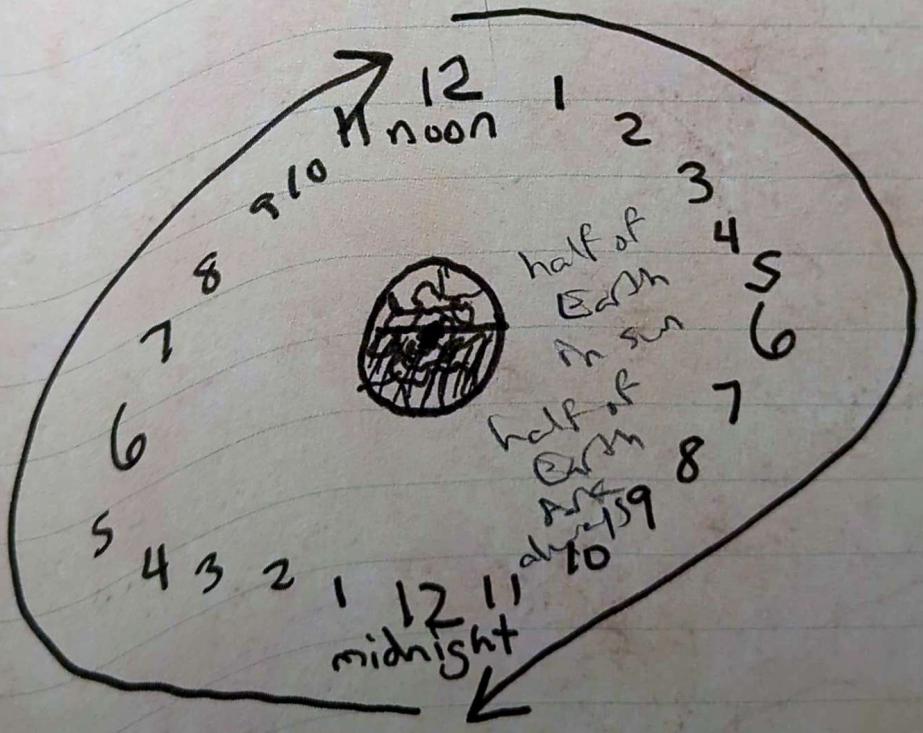 12
noon
1
2
3
4
5
6
7
8
9
10
11
12
midnight
1
2
3
4
5
6
7
8
9
10
11
half of
Earth
in sun
half of
Earth
dark
always